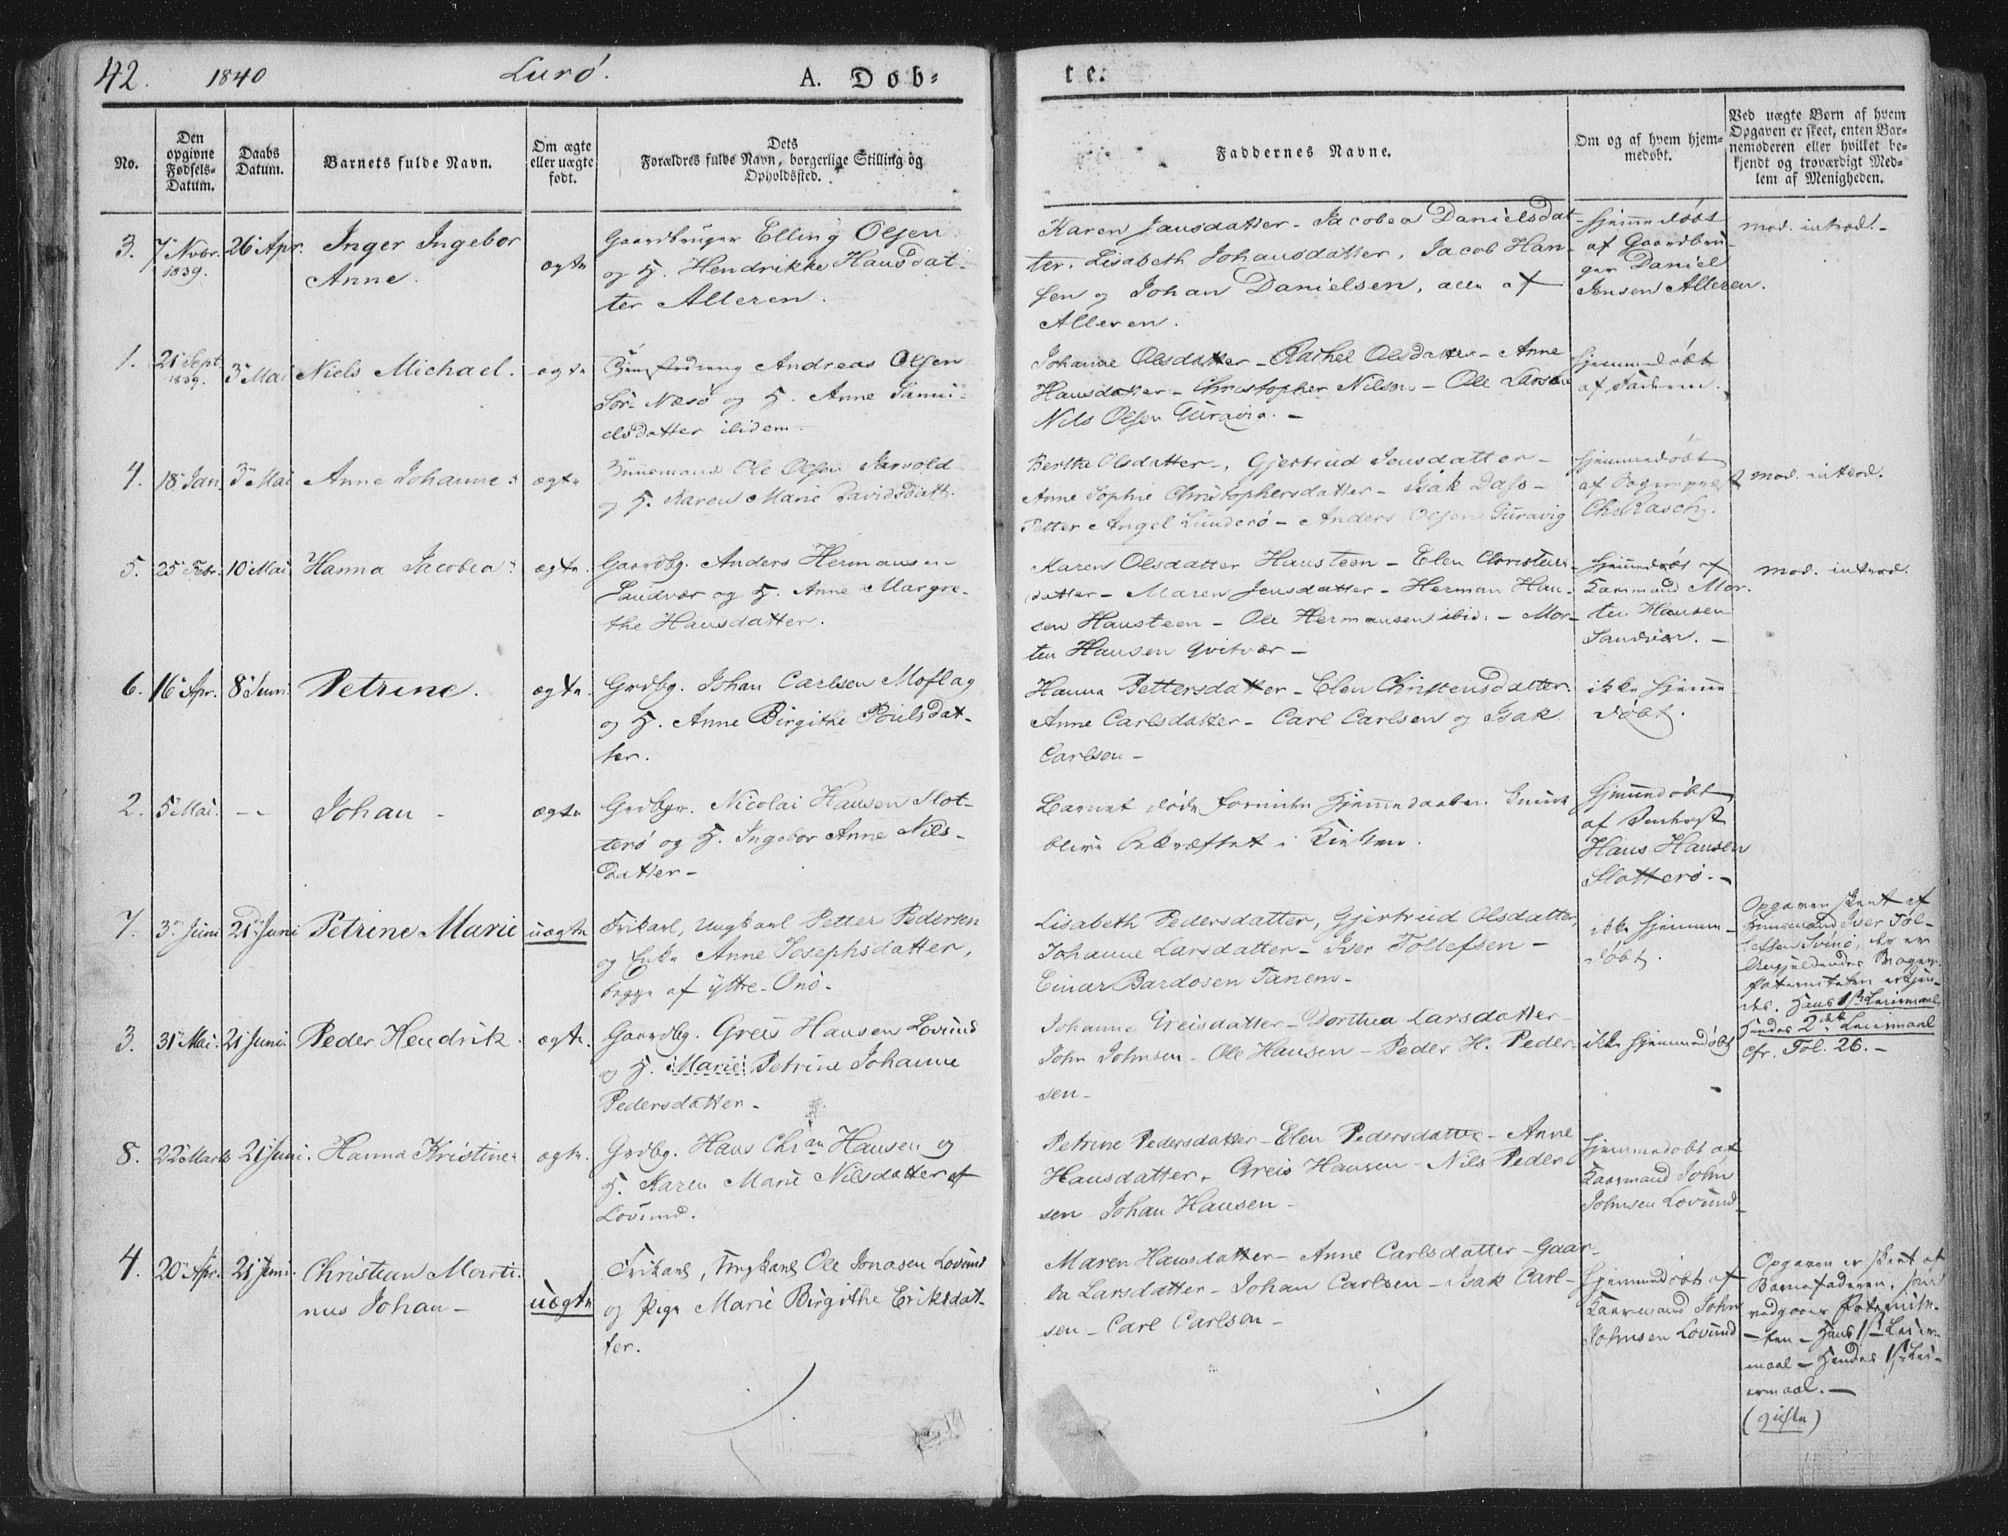 42. 1840 Lurø. A. Døb=
te.
No.
Den opgivne Fødsels-Datum.
Daabs Datum.
Barnets fulde Navn.
Om ægte eller uægte født.
Dets Forældres fulde Navn, borgerlige Stilling og Opholdssted.
Faddernes Navne.
Om og af hvem hjemmedøbt.
Ved uægte Børn af hvem
Opgaven er skeet, enten Bar-
nemoderen eller hvilket be-
kjendt og troværdigt Med-
lem af Menigheden.
3. 7 Novbr. 1839. 26 Apr. Inger Ingebor
Anne.
ægte
Gaardbruger Elling Olsen
og H. Hendrikke Hansdat-
ter Alleren.
Karen Jansdatter - Jacobea Danielsdat-
ter. Lisabeth Johansdatter, Jacob Han-
sen og Johan Danielsen, alle af
Alleren.
hjemmedøbt
af Gaardbru-
ger Daniel
Jensen Alleren.
mod. introd. -
1. 21 Sept 1839. 3 Mai Niels Michael. ægte
Andreas Olsen
Sør-Næsø og H. Anne Samu-
elsdatter ibidem.
Johanne Olsdatter - Rachel Olsdatter - Anne
Hansdatter - Christopher Nilsen - Ole Larsen
Nils Olsen Guravig. -
hjemmedøbt
af Faderen.
4. 18 Jan. 3 Mai Anne Johanne. ægte
Huusmand Ole Olsen Sørvold
og H. Karen Marie Davidsdatt.
Berthe Olsdatter -, Gjertrud Jensdatter -
Anne Sophie Christophersdatter - Isak Dass -
Petter Angel Lunderø - Anders Olsen Guravig
hjemmedøbt
af Sogneprest
Chr Rasch.
mod. introd.
5. 25 Febr. 10 Mai Hanna Jacobea. ægte.
Gaardbg. Anders Hermansen
Sandvær og H. Anne Margre-
the Hansdatter.
Karen Olsdatter Hansteen - Elen Christens-
datter - Maren Jensdatter - Herman Han-
sen Hansteen - Ole Hermansen ibid: - Mor-
ten Hansen Qvitvær -
hjemmedøbt af
Kaarmand Mor-
ten Hansen
Sandvær. -
mod. introd.
6. 16 Apr. 8 Juni Petrine. ægte.
Grdbg. Johan Carlsen Moflag
og H. Anne Birgithe Poulsdat-
ter.
Hanna Pettersdatter - Elen Christensdatter.
Anne Carlsdatter - Carl Carlsen og Isak
Carlsen -
ikke hjemme-
døbt.
2. 5 Mai. - - Johan - ægte
Grdbgr. Nicolai Hansen Slot-
terø og H. Ingebor Anne Nils-
datter -
Barnet døde forinden Hjemmedaaben kunde
blive bekræftet i Kirken.
hjemmedøbt
af
Hans Hansen
Slotterø. -
7. 3 Juni 21 Juni Petrine Marie uægte
Frikarl, Ungkarl Petter Pedersen
og Enke Anne Josephsdatter,
begge af yttre-Onø.
Lisabeth Pedersdatter, Gjertrud Olsdatter,
Johanne Larsdatter - Iver Tollefsen -
Einar Bardosen Tanem -
ikke hjemme-
døbt.
Opgaven skeet af
Huusmand Iver Tol-
lefsen Svinø,
Hans 1ste Leiermaal
Hendes 2det Leiermaal
cfr. Fol. 26. -
3. 31 Mai. 21 Juni. Peder Hendrik. ægte.
Gaardbg. Greis Hansen Lovund
og H. Marie Petrine Johanne
Pedersdatter -
Johanne Greisdatter - Dorthea Larsdatter -
John Johnsen - Ole Hansen - Peder H. Peder-
sen -
ikke hjemmedøbt
8. 22 Marts 21 Juni. Hanna Kristine. ægte.
Grdbg. Hans Chran Hansen og
H. Karen Marie Nilsdatter af
Lovund.
Petrine Pedersdatter - Elen Pedersdatter - Anne
Hansdatter, Greis Hansen - Nils Peder-
sen - Johan Hansen -
hjemmedøbt af
Kaarmand John
Johnsen Lovund -
4. 20 Apr. 21 Juni. Christian Marti-
nus Johan - uægte
Frikarl, Ungkarl Ole Jonasen Lovund
og Pige Marie Birgithe Eriksdat-
ter.
Maren Hansdatter - Anne Carlsdatter - Gaar-
da Larsdatter - Johan Carlsen - Isak Carl-
sen - Carl Carlson -
hjemmedøbt af
Kaarmand John
Johnsen Lovund
Opgaven er skeet af
Barnefaderen, som
vedgaaer Paternite-
ten - Hans 1st Leier-
maal - Hendes 1st Lei-
ermaal. -
(gifte)